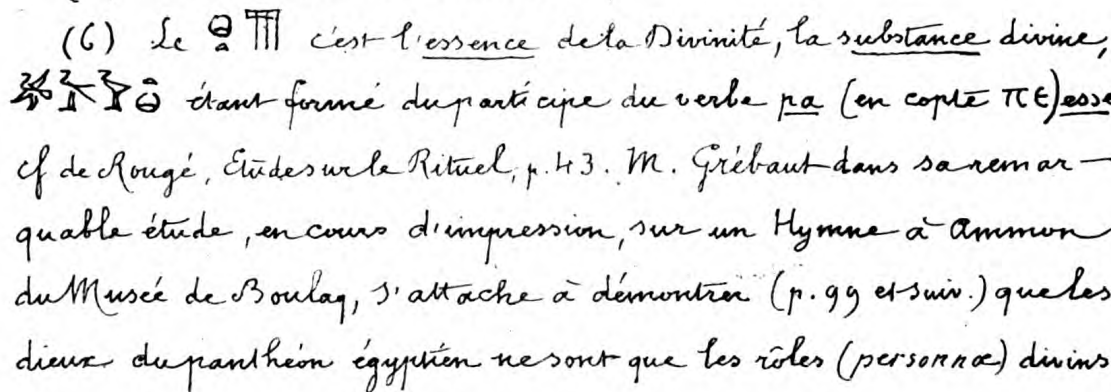 (6) Le c'est l'essence de la Divinité, la substance divine,
étant formé du participe du verbe pa (en copte πε) esse
cf de Rougé, Etudes sur le Rituel, p. 43. M. Grébaut dans sa remar-
quable étude, en cours d'impression, sur un Hymne à Ammon
du Musée de Boulaq, s'attache à démontrer (p. 99 et suiv.) que les
dieux du panthéon égyptien ne sont que les rôles (personnæ) divins